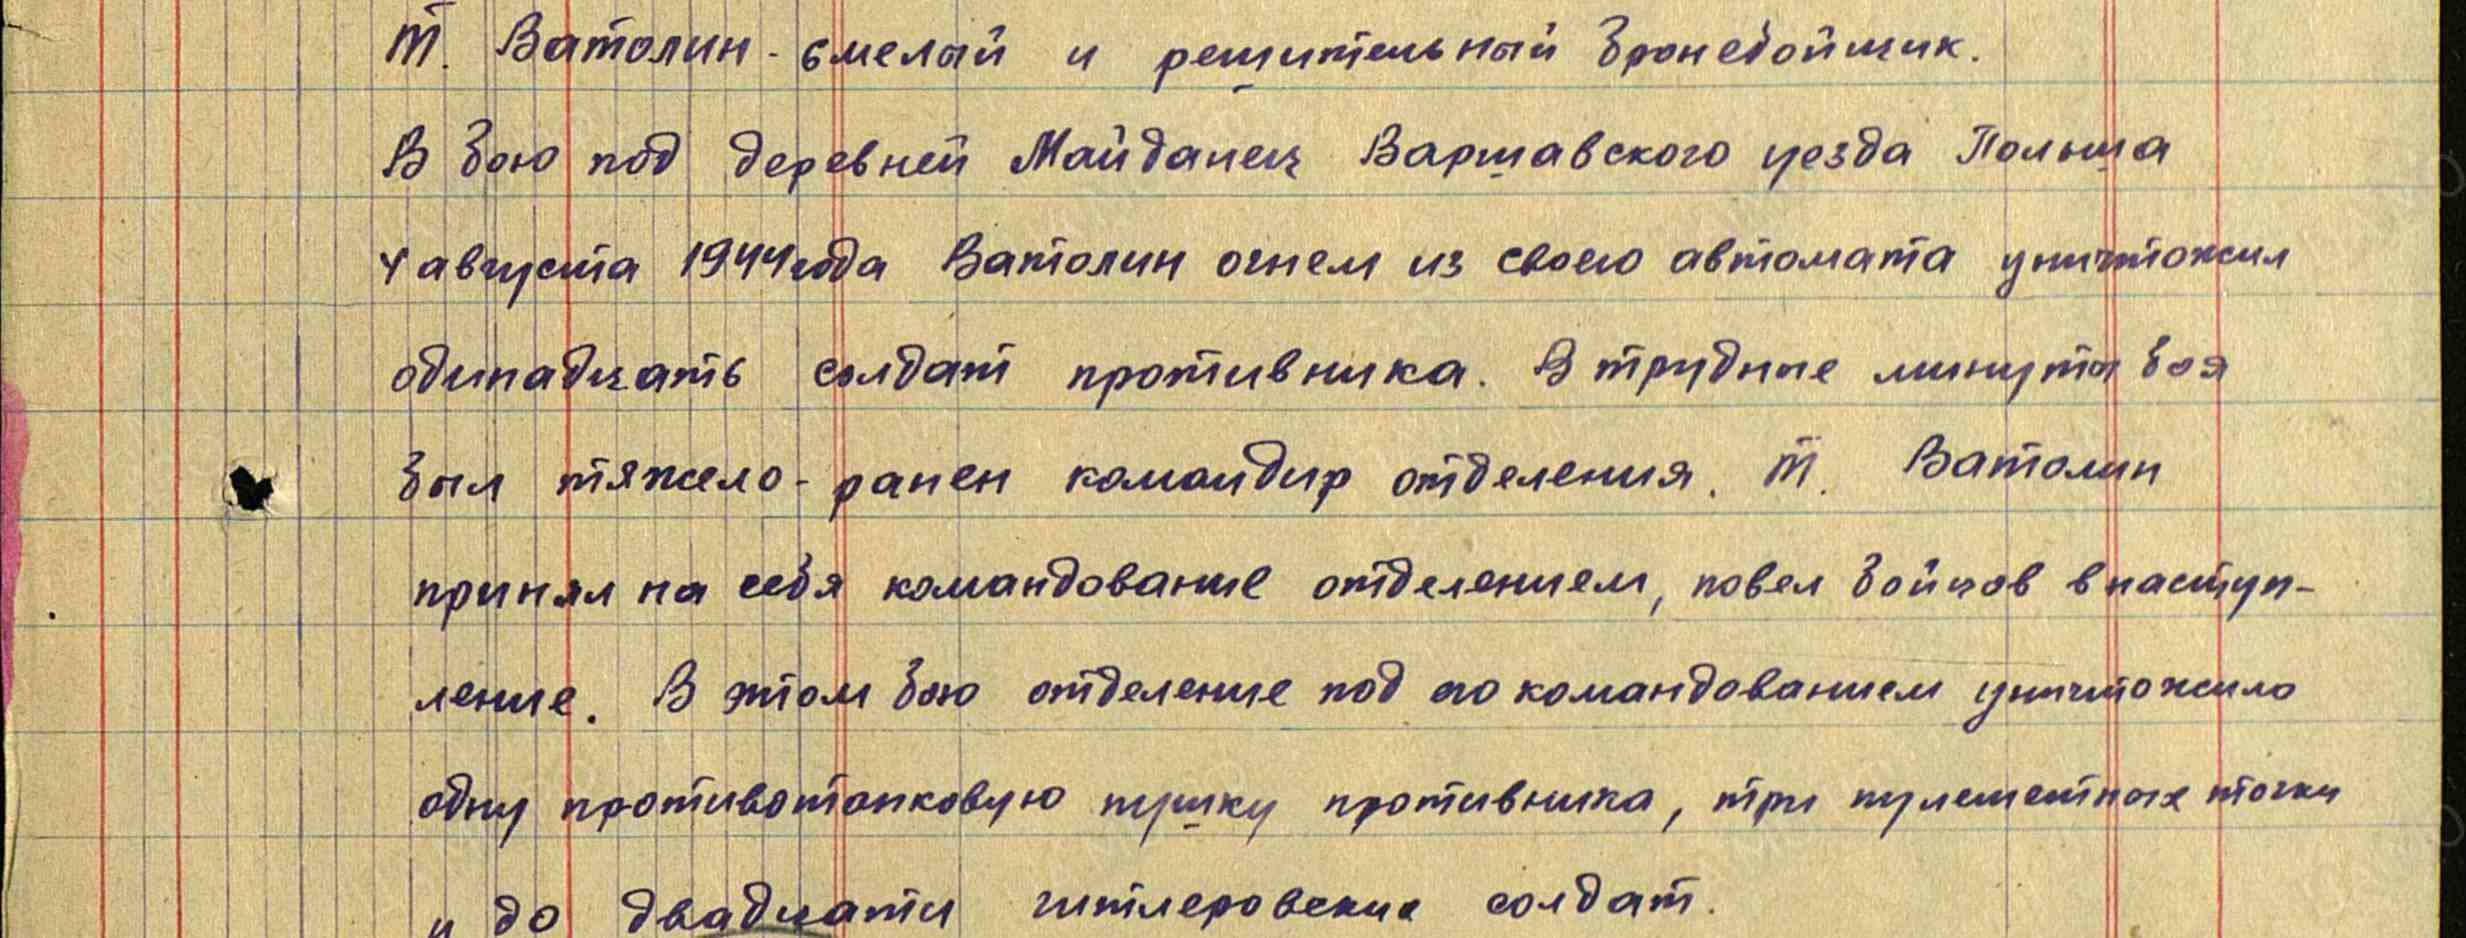 Т. Ватолин - смелый и решительный бронебойщик.
В бою под деревней Майданец Варшавского уезда Польша
4 августа 1944 года Ватолин огнем из своего автомата уничтожил
одинадцать солдат противника. В трудные минуты боя
был тяжело-ранен командир отделения. Т. Ватолин
принял на себя командование отделением, повел бойцов в наступ-
ление. В этом бою отделение под его командованием уничтожило
одну противотанковую пушку противника, три пулеметных точки
и до двадцати гитлеровских солдат.